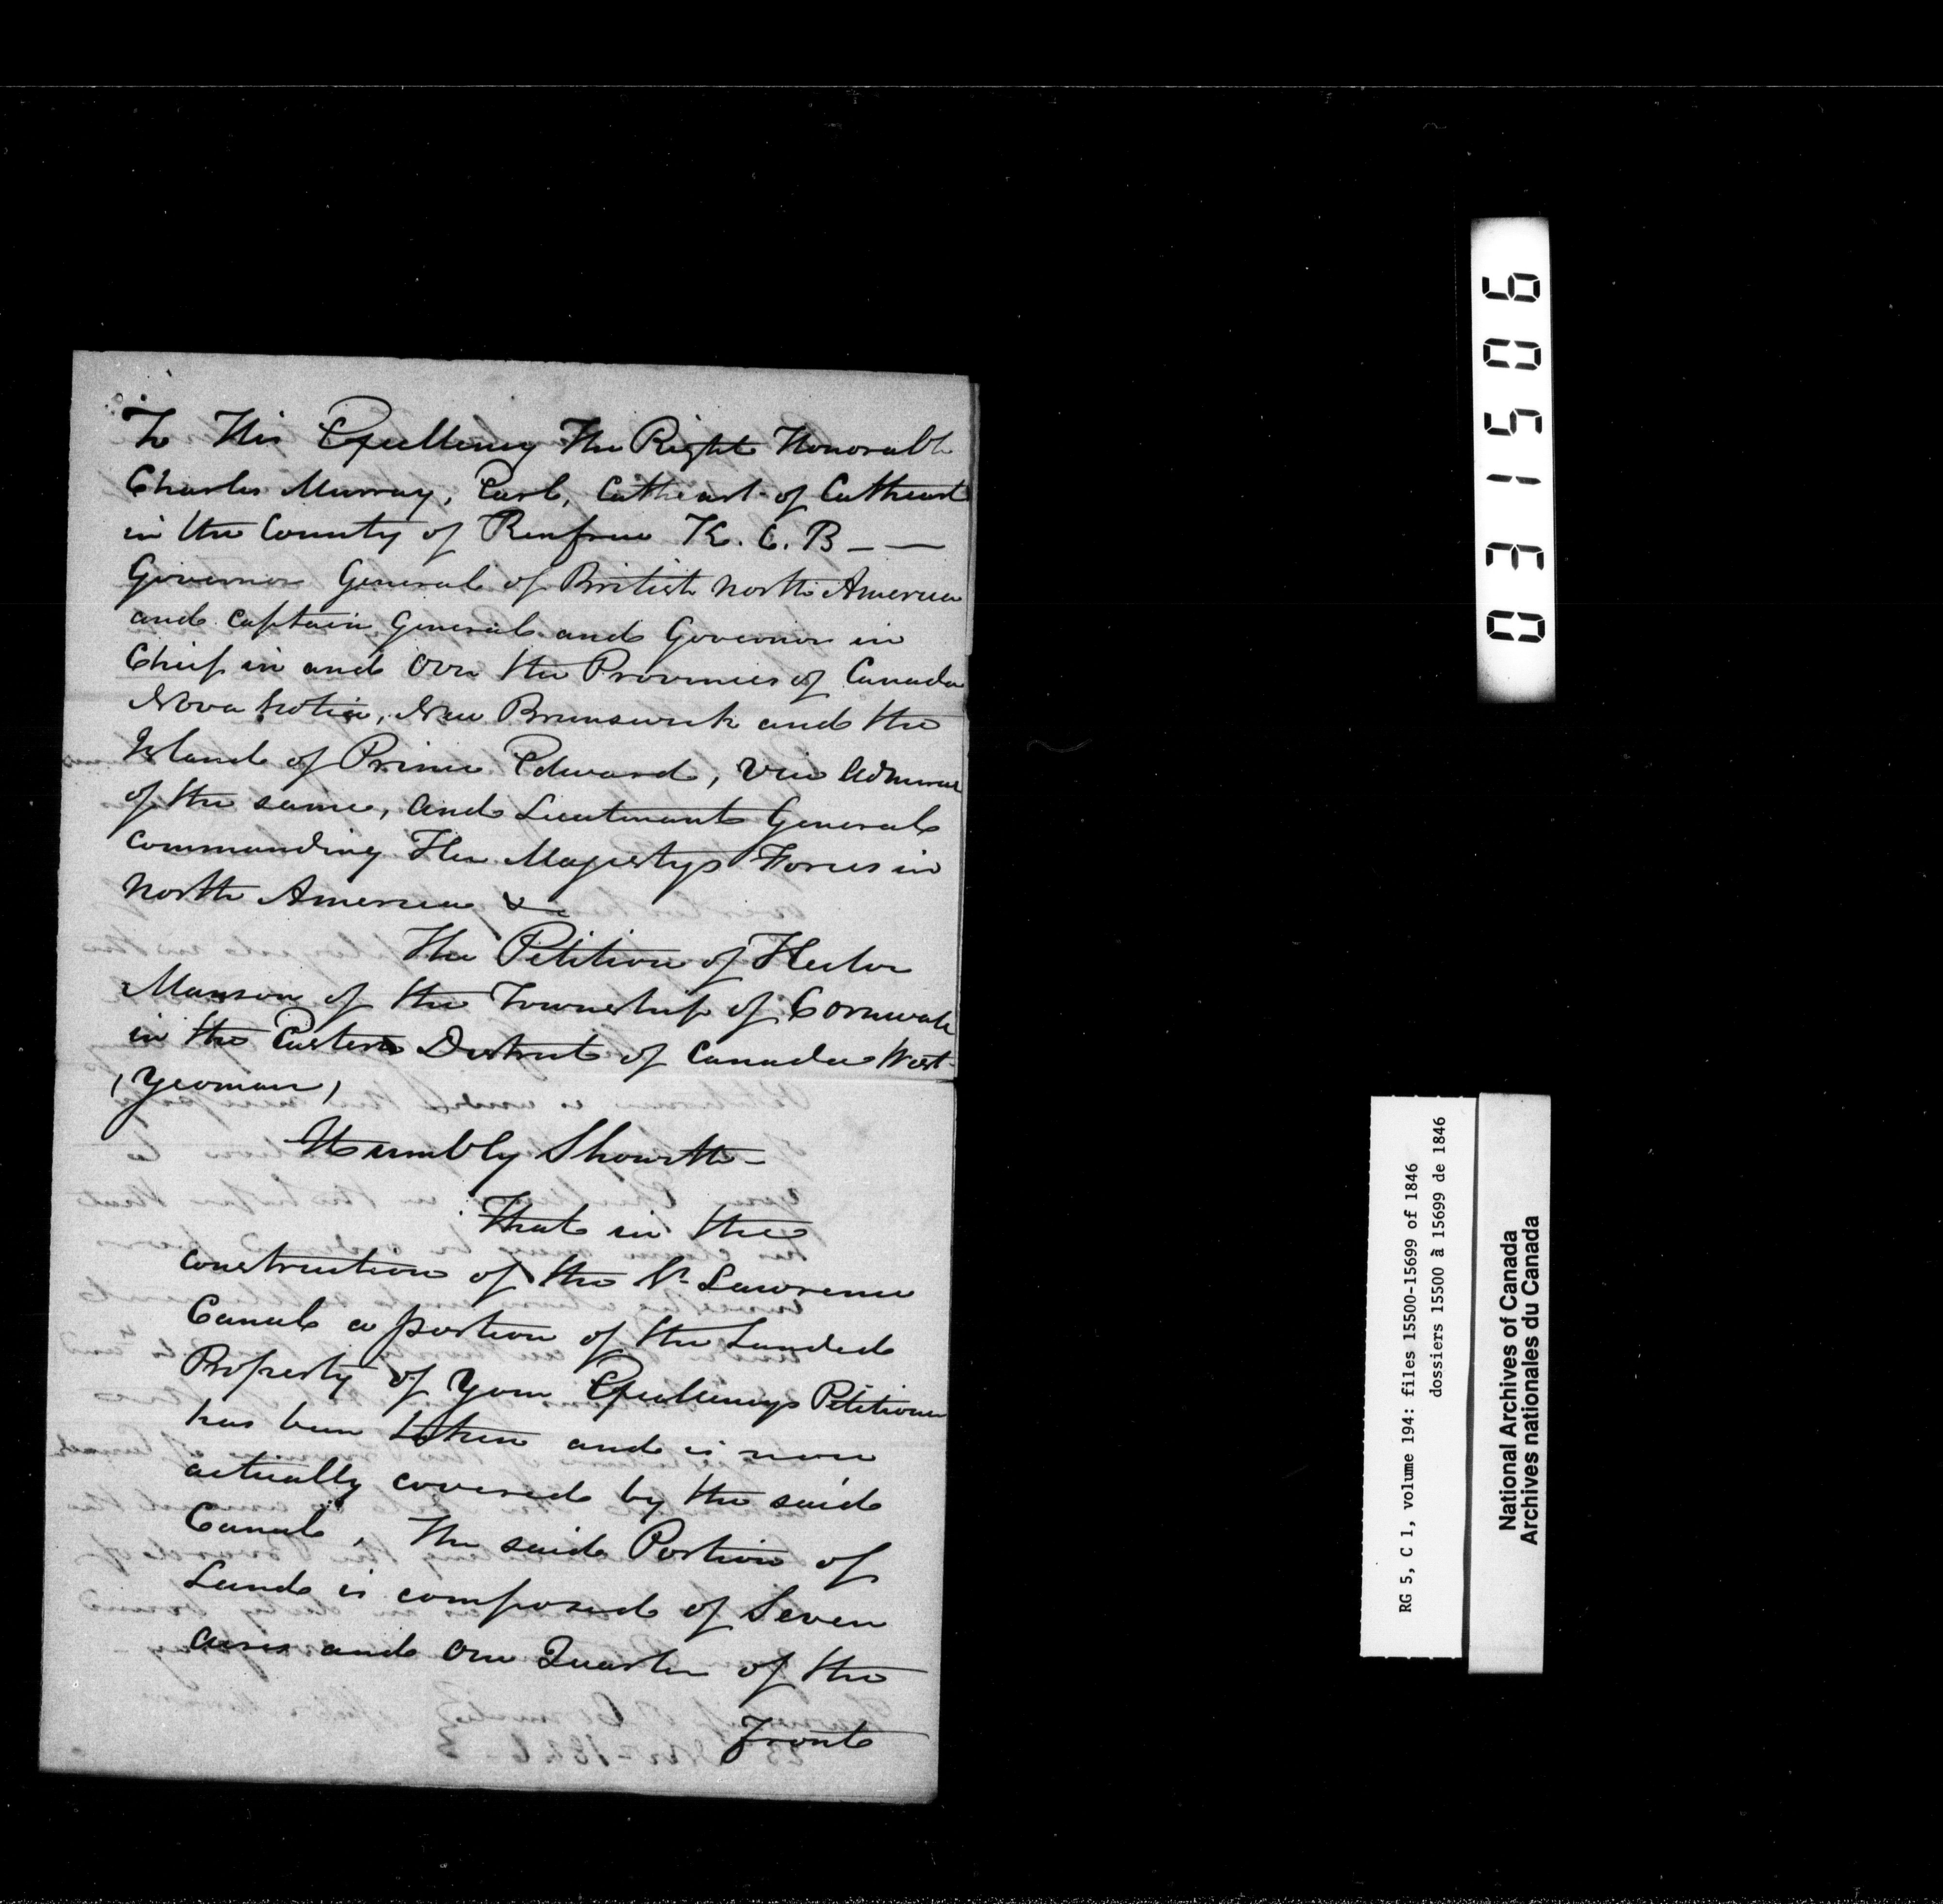 To His Excellency The Right Honorable
Charles Murray, Earl, Cathcart of Cathcart
in the County of Renfrew K. C. B — —
Governor General of British North America
and Captain General and Governor in
Chief in and over the Provinces of Canada
Nova Scotia, New Brunswick and the
Island of Prince Edward, Vice Admiral
of the same, and Lieutenant General
commanding Her Majestys Forces in
North America &c
The Petition of Hector
Manson of the Township of Cornwall
in the Eastern District of Canada West
(Yeoman)
Humbly Showeth
That in the
construction of the St Lawrence
Canal a portion of the Landed
Property of Your Excellencys Petitioner
has been taken and is now
actually covered by the said
Canal, The said Portion of
Land is composed of Seven
acres and One Quarter of the
Front
031506
RG 5, C 1, volume 194: files 15500-15699 of 1846
dossiers 15500 à 15699 de 1846
National Archives of Canada
Archives nationales du Canada